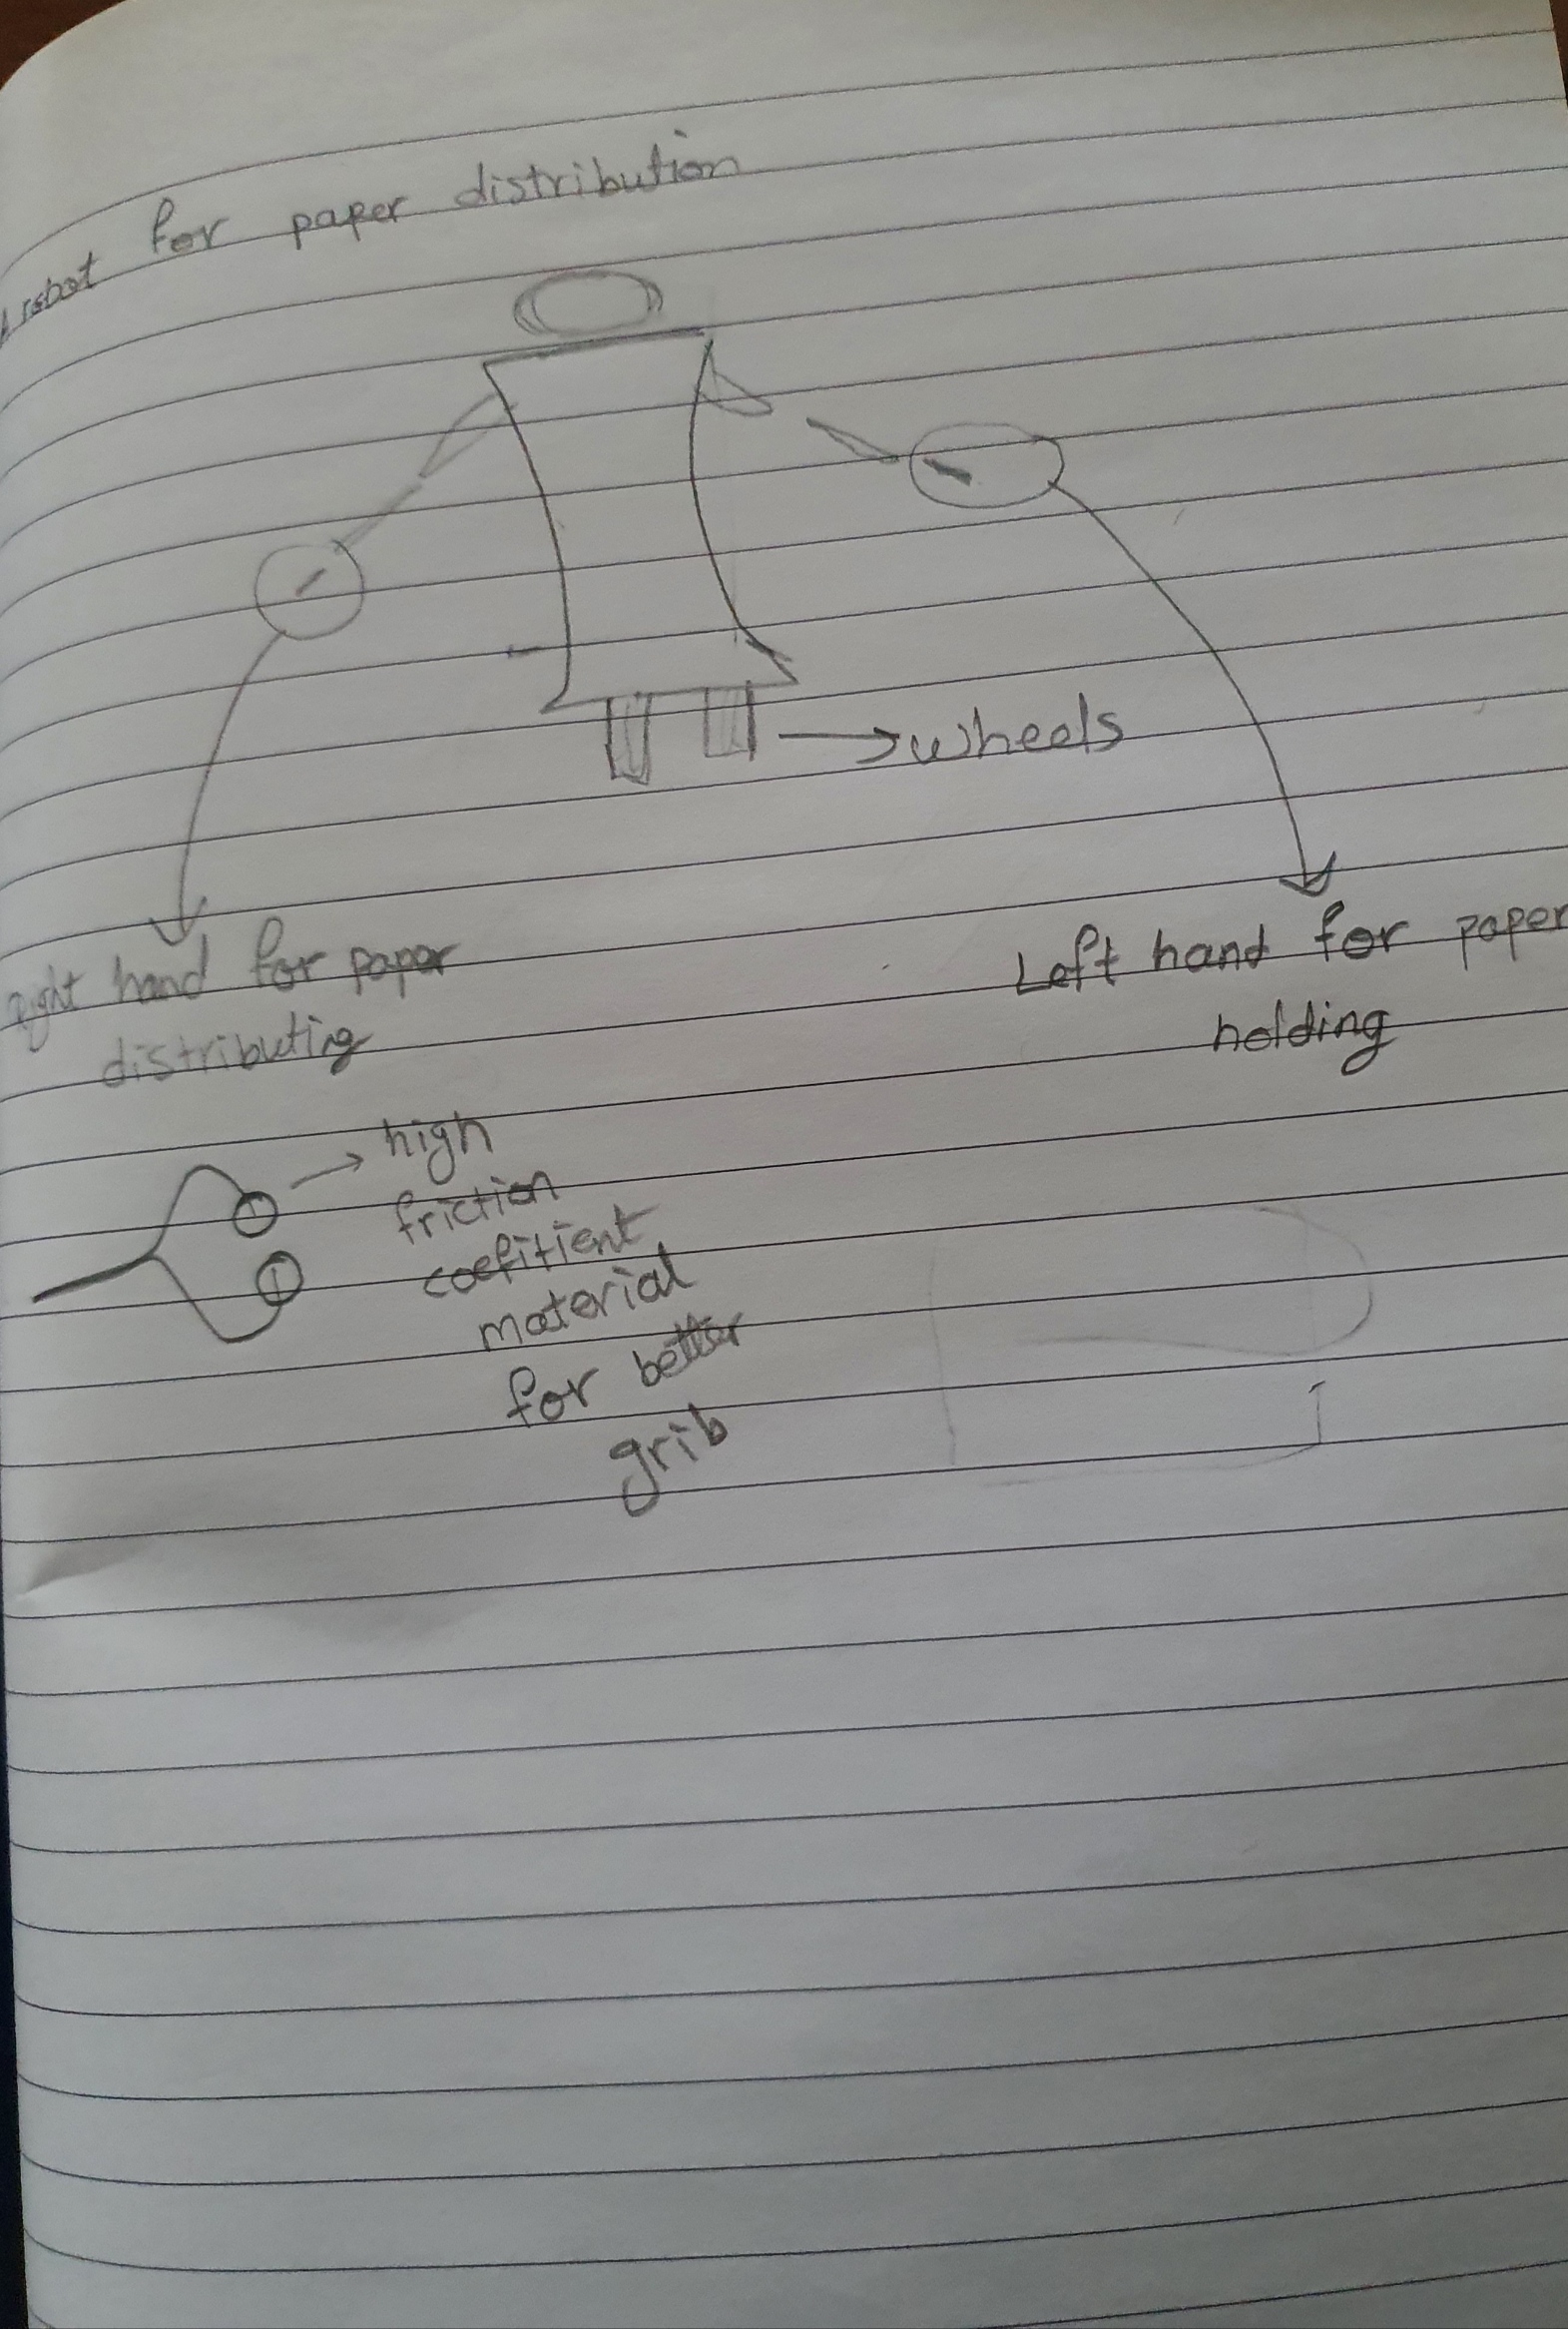 A robot for paper distribution
wheels
Right hand for paper
distributing
Left hand for paper
holding
high
friction
coefitient
material
for better
grib